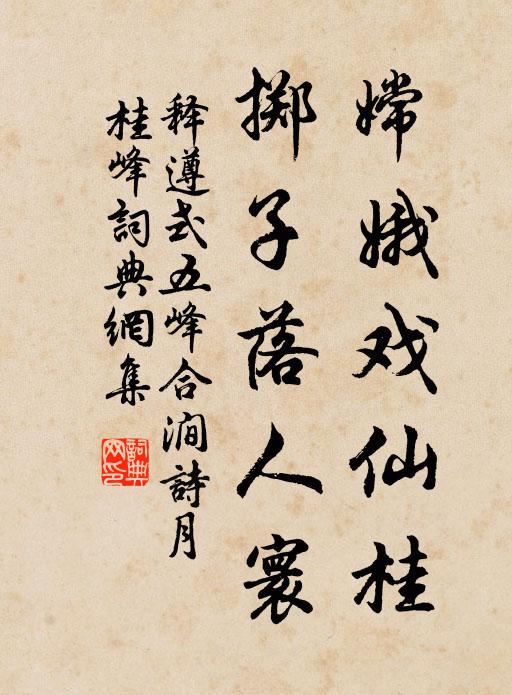 嫦娥戏仙桂
掷子落人寰
释遵式五峰合涧詩月
桂峰詞典網集
詞典
网印